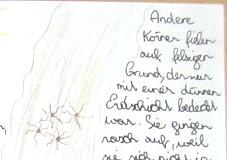 Andere
Körner fielen
auf felsigen
Grund, der nur
mit einer dünnen
Erdschicht bedeckt
war. Sie gingen
rasch auf, weil
sie sich nicht in